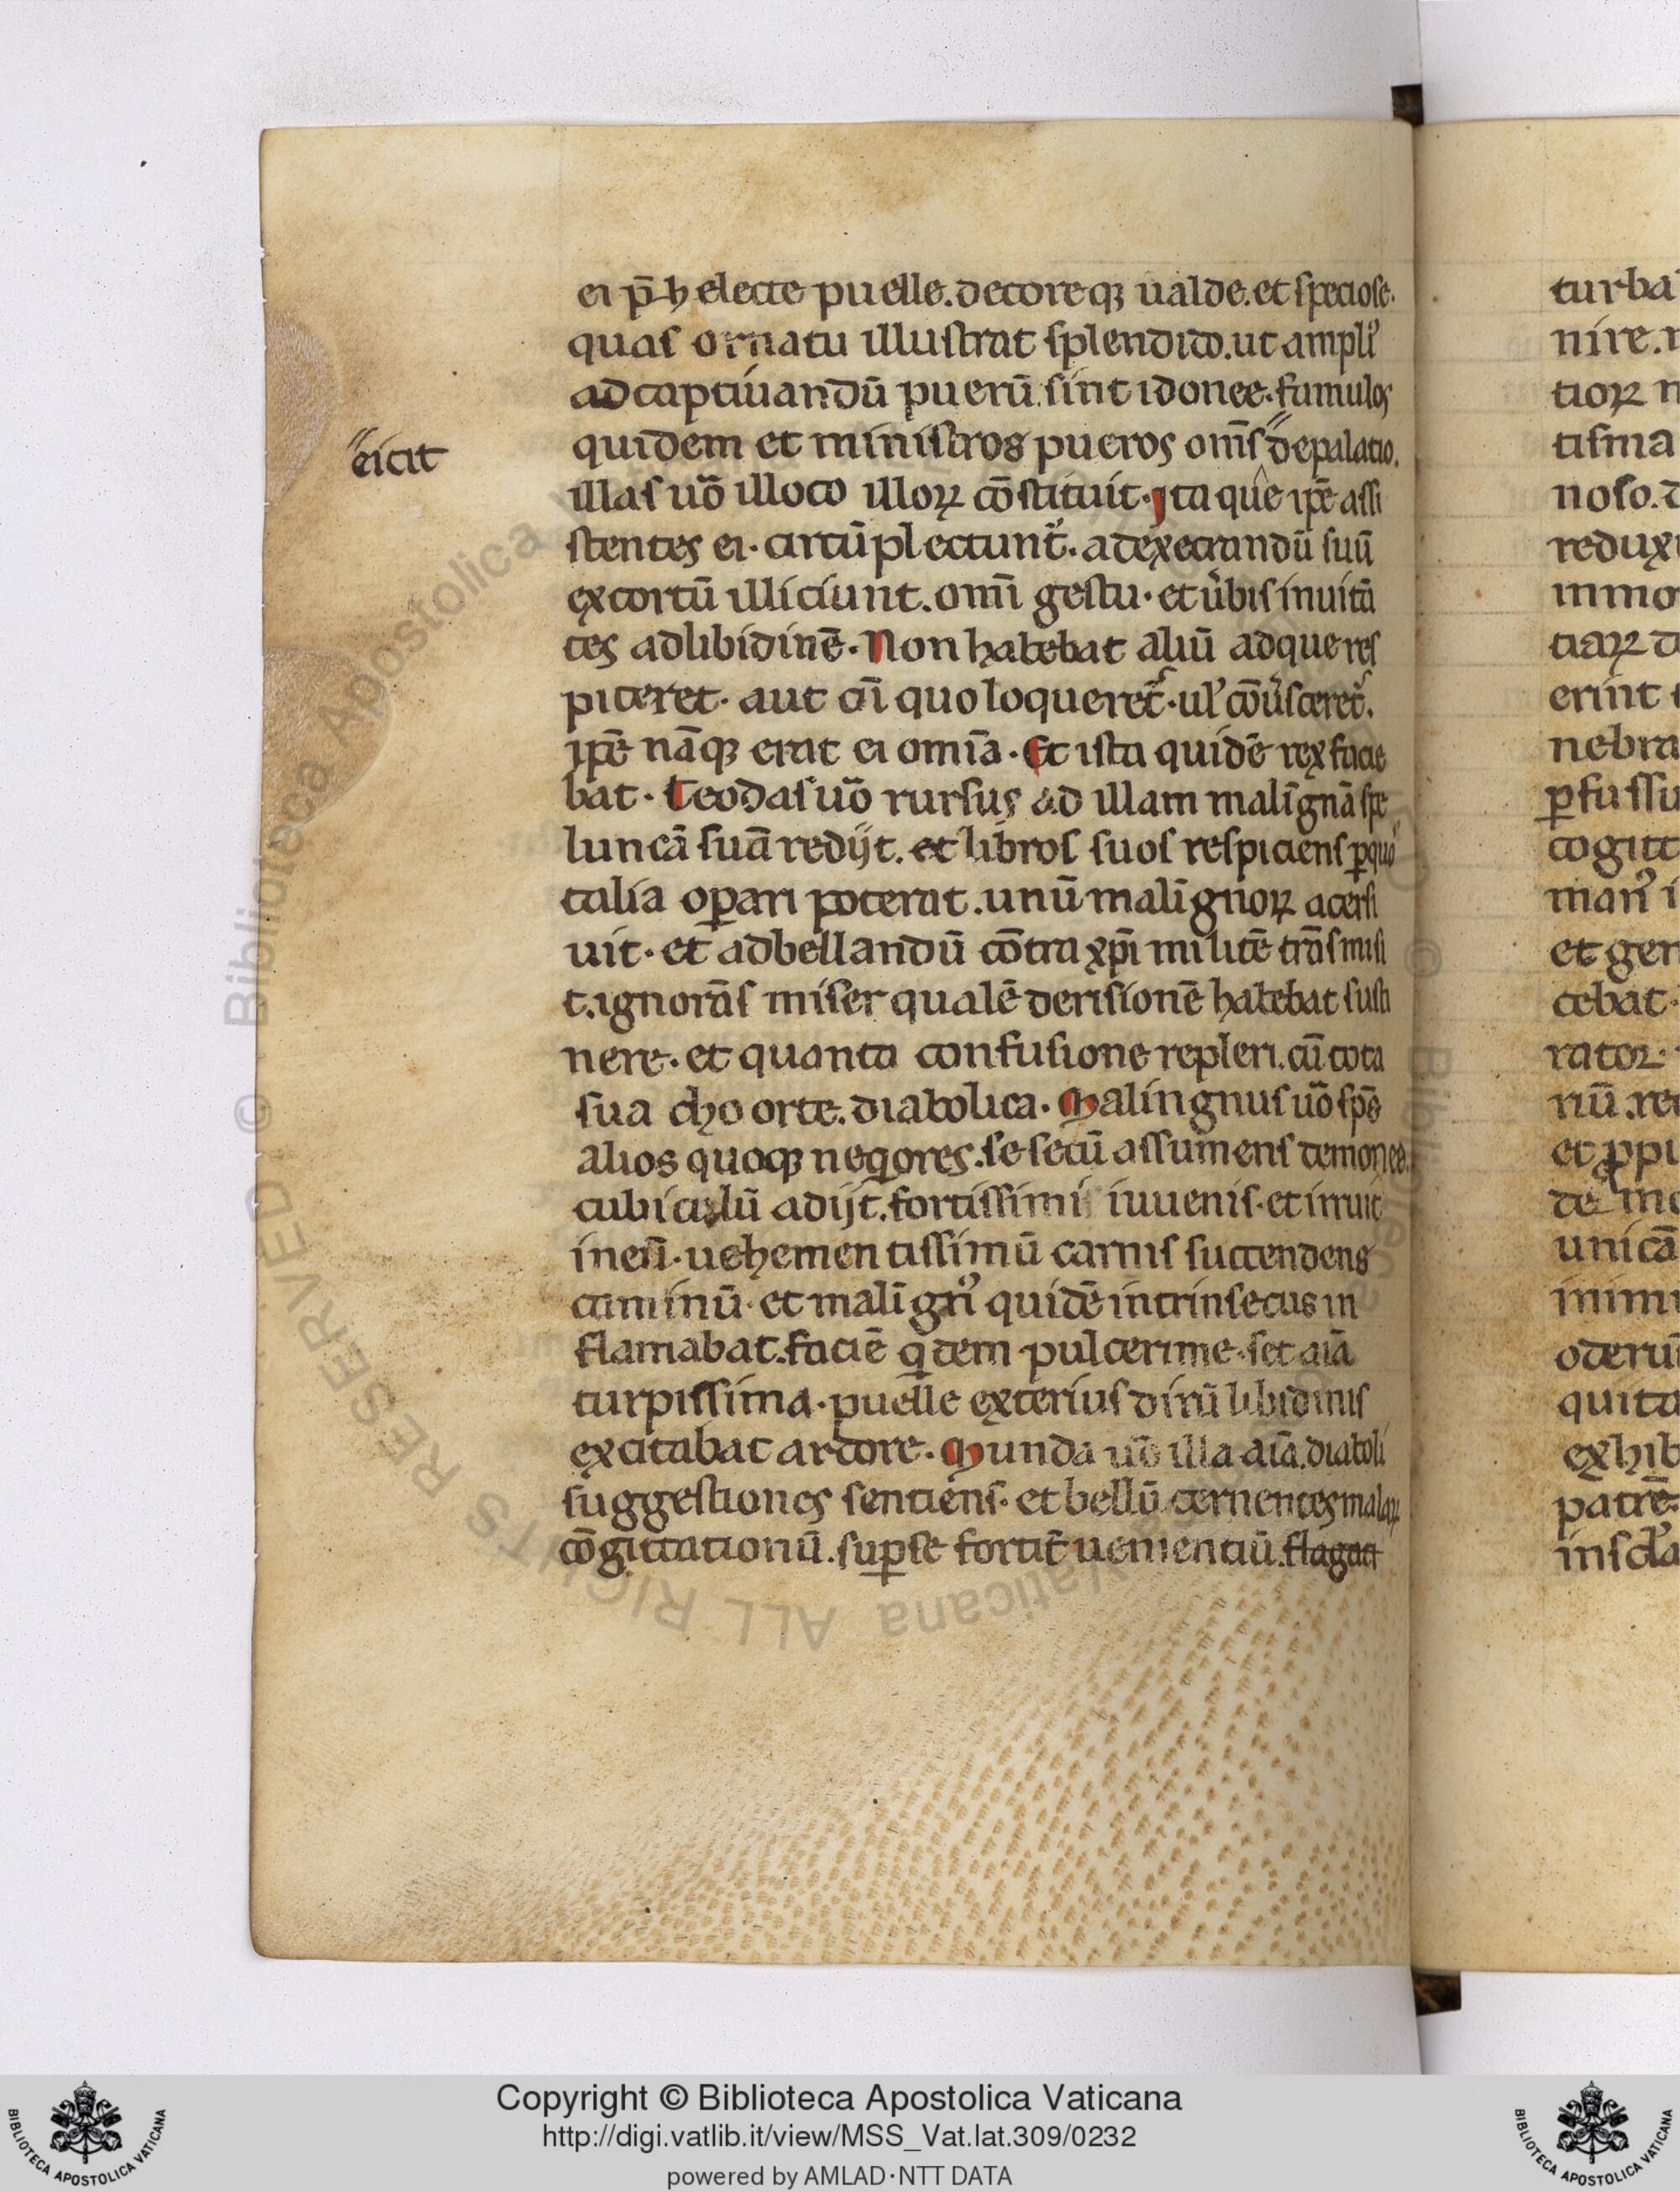 ei p̄ħ electe puelle. decoreqꝫ ualde. et speciose.
quas ornatu illustrat splendido. ut ampliꝰ
ad captiuandū puerū. sint idonee. famulos
eicit
quidem et ministros pueros om̄s de palatio.
illas uō illoco illoꝝ cōstituit. Ita que ip̄e assi
stentes ei. circūplectunt᷑. ad execrandū suū
excortū illiciunt. omī gestu. et ùbis inuitā
tes ad libidinē. Non habebat aliū ad que res
piceret. aut cū quo loqueret᷑. ul̓ cōùsceret᷑.
ip̄e nāqꝫ erat ei omīa. Et ista quidē rex facie
bat. Teodas uō rursus ad illam malīgnā spe
luncā suā redijt. et libros suos respiciens ꝑ quos
talia oꝑari poterat. unū malignoꝝ acersi
uit. et ad bellandū cōtra xp̄i militē trāsmisi
t. ignorās miser qualē derisionē habebat susti
nere. et quanta confusione repleri. cū tota
sua choorte. diabolica. Malingnus uō sp̄c
alios quoqꝫ neqores. se secū assumens demonee.
cubiculū adijt. fortissimi iuuenis. et irruit
in eū. uehementissimū carnis succendens
caminū. et malīgnꝰ quidē intrinsecus in
flamabat. faciē qdem pulcerime. set aīa
turpissima. puelle exterius dirū libidinis
excitabat ardore. Munda uō illa aīa. diaboli
suggestiones sentiens. et bellū cernentes malaꝝ
cōgittationū. suꝑ se fortit᷑ uenientiū. flagat
turba
nire.
tioꝝ
tisma
noso.
redux
inmo
tiaꝝ
erint
nebra
ꝑfussu
cogitt
manꝰ
et gen
cebat.
rator.
nū. re
et ppi
de
unicā
inimi
oderū
quita
exhib
patrē.
inscl̓a
Copyright © Biblioteca Apostolica Vaticana
http://digi.vatlib.it/view/MSS_Vat.lat.309/0232
powered by AMLAD·NTT DATA
BIBLIOTECA APOSTOLICA VATICANA
BIBLIOTECA APOSTOLICA VATICANA
© Biblioteca Apostolica Vaticana ALL RIGHTS RESERVED